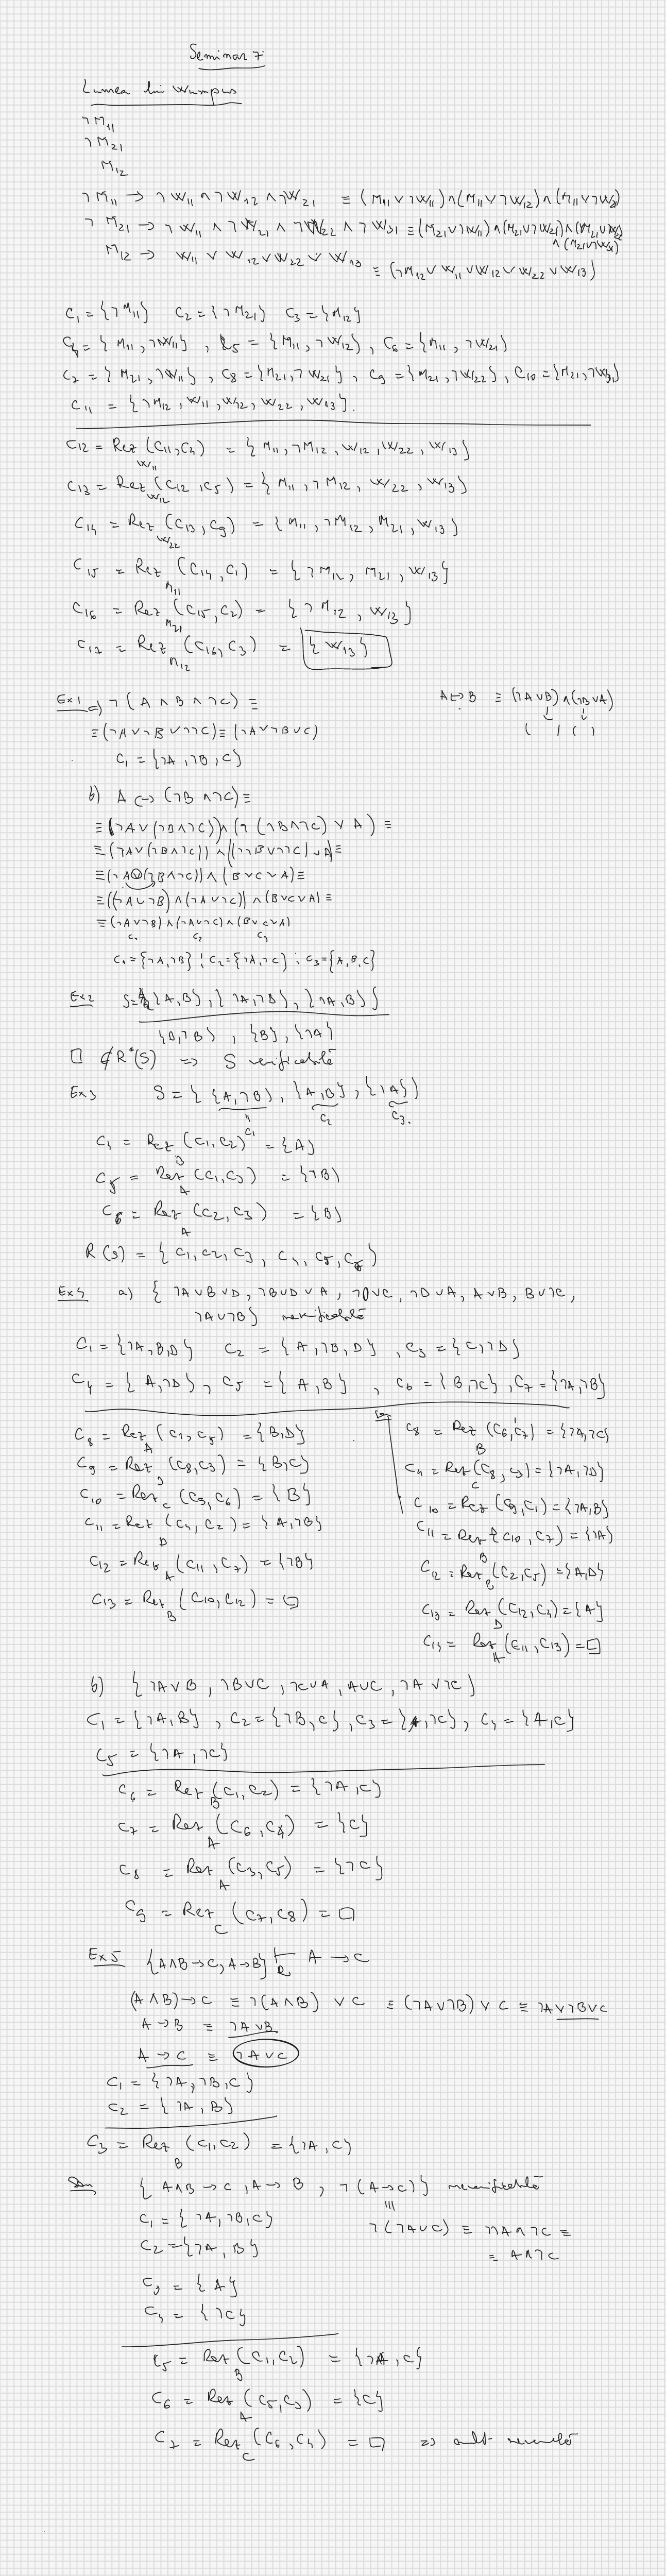 Seminar 7
Lumea lui Wumpus
¬M₁₁
¬M₂₁
M₁₂
¬M₁₁ → ¬W₁₁ ∧ ¬W₁₂ ∧ ¬W₂₁ ≡ (M₁₁ ∨ ¬W₁₁) ∧ (M₁₁ ∨ ¬W₁₂) ∧ (M₁₁ ∨ ¬W₂₁)
¬M₂₁ → ¬W₁₁ ∧ ¬W₂₁ ∧ ¬W₂₂ ∧ ¬W₃₁ ≡ (M₂₁ ∨ ¬W₁₁) ∧ (M₂₁ ∨ ¬W₂₁) ∧ (M₂₁ ∨ ¬W₂₂
∧ (M₂₁ ∨ ¬W₃₁)
M₁₂ → W₁₁ ∨ W₁₂ ∨ W₂₂ ∨ W₁₃ ≡ (¬M₁₂ ∨ W₁₁ ∨ W₁₂ ∨ W₂₂ ∨ W₁₃)
C₁ = {¬M₁₁} C₂ = {¬M₂₁} C₃ = {M₁₂}
C₄ = {M₁₁, ¬W₁₁}, C₅ = {M₁₁, ¬W₁₂}, C₆ = {M₁₁, ¬W₂₁}
C₇ = {M₂₁, ¬W₁₁}, C₈ = {M₂₁, ¬W₂₁}, C₉ = {M₂₁, ¬W₂₂}, C₁₀ = {M₂₁, ¬W₃₁}
C₁₁ = {¬M₁₂, W₁₁, W₁₂, W₂₂, W₁₃}.
C₁₂ = Rez_W₁₁ (C₁₁, C₄) = {M₁₁, ¬M₁₂, W₁₂, W₂₂, W₁₃}
C₁₃ = Rez_W₁₂ (C₁₂, C₅) = {M₁₁, ¬M₁₂, W₂₂, W₁₃}
C₁₄ = Rez_W₂₂ (C₁₃, C₉) = {M₁₁, ¬M₁₂, M₂₁, W₁₃}
C₁₅ = Rez_M₁₁ (C₁₄, C₁) = {¬M₁₂, M₂₁, W₁₃}
C₁₆ = Rez_M₂₁ (C₁₅, C₂) = {¬M₁₂, W₁₃}
C₁₇ = Rez_M₁₂ (C₁₆, C₃) = {W₁₃}
Ex1 a) ¬(A ∧ B ∧ ¬C) ≡
A ↔ B ≡ (¬A ∨ B) ∧ (¬B ∨ A)
≡ (¬A ∨ ¬B ∨ ¬¬C) ≡ (¬A ∨ ¬B ∨ C)
C₁ = {¬A, ¬B, C}
b) A ↔ (¬B ∧ ¬C) ≡
≡ (¬A ∨ (¬B ∧ ¬C)) ∧ (¬(¬B ∧ ¬C) ∨ A) ≡
≡ (¬A ∨ (¬B ∧ ¬C)) ∧ ((¬¬B ∨ ¬¬C) ∨ A) ≡
≡ (¬A ∨ (¬B ∧ ¬C)) ∧ (B ∨ C ∨ A) ≡
≡ ((¬A ∨ ¬B) ∧ (¬A ∨ ¬C)) ∧ (B ∨ C ∨ A) ≡
≡ (¬A ∨ ¬B) ∧ (¬A ∨ ¬C) ∧ (B ∨ C ∨ A)
C₁ C₂ C₃
C₁ = {¬A, ¬B}; C₂ = {¬A, ¬C}; C₃ = {A, B, C}
Ex2 S = {{A, B}, {¬A, ¬B}, {¬A, B}}
{B, ¬B}, {B}, {¬A}
□ ∉ R*(S) => S verificabilă
Ex3 S = {{A, ¬B}, {A, B}, {¬A}}
C₁ C₂ C₃.
C₄ = Rez_B (C₁, C₂) = {A}
C₅ = Rez_A (C₁, C₃) = {¬B}
C₆ = Rez_A (C₂, C₃) = {B}
R(S) = {C₁, C₂, C₃, C₄, C₅, C₆}
Ex4 a) {¬A ∨ B ∨ D, ¬B ∨ D ∨ A, ¬D ∨ C, ¬D ∨ A, A ∨ B, B ∨ ¬C,
¬A ∨ ¬B} neverificabilă
C₁ = {¬A, B, D} C₂ = {A, ¬B, D}, C₃ = {C, ¬D}
C₄ = {A, ¬D}, C₅ = {A, B}, C₆ = {B, ¬C}, C₇ = {¬A, ¬B}
C₈ = Rez_A (C₁, C₅) = {B, D}
C₉ = Rez_D (C₈, C₃) = {B, C}
C₁₀ = Rez_C (C₉, C₆) = {B}
C₁₁ = Rez_D (C₄, C₂) = {A, ¬B}
C₁₂ = Rez_A (C₁₁, C₇) = {¬B}
C₁₃ = Rez_B (C₁₀, C₁₂) = □
C₈ = Rez_B (C₆, C₇) = {¬A, ¬C}
C₉ = Rez_C (C₈, C₃) = {¬A, ¬D}
C₁₀ = Rez (C₉, C₁) = {¬A, B}
C₁₁ = Rez_B (C₁₀, C₇) = {¬A}
C₁₂ = Rez_B (C₂, C₅) = {A, D}
C₁₃ = Rez_D (C₁₂, C₄) = {A}
C₁₄ = Rez_A (C₁₁, C₁₃) = □
b) {¬A ∨ B, ¬B ∨ C, ¬C ∨ A, A ∨ C, ¬A ∨ ¬C}
C₁ = {¬A, B}, C₂ = {¬B, C}, C₃ = {A, ¬C}, C₄ = {A, C}
C₅ = {¬A, ¬C}
C₆ = Rez_B (C₁, C₂) = {¬A, C}
C₇ = Rez_A (C₆, C₄) = {C}
C₈ = Rez_A (C₃, C₅) = {¬C}
C₉ = Rez_C (C₇, C₈) = □
Ex5 {A ∧ B → C, A → B} ⊢_R A → C
(A ∧ B) → C ≡ ¬(A ∧ B) ∨ C ≡ (¬A ∨ ¬B) ∨ C ≡ ¬A ∨ ¬B ∨ C
A → B ≡ ¬A ∨ B
A → C ≡ ¬A ∨ C
C₁ = {¬A, ¬B, C}
C₂ = {¬A, B}
C₃ = Rez_B (C₁, C₂) = {¬A, C}
Sau {A ∧ B → C, A → B, ¬(A → C)} neverificabilă
C₁ = {¬A, ¬B, C}
¬(¬A ∨ C) ≡ ¬¬A ∧ ¬C ≡
C₂ = {¬A, B}
≡ A ∧ ¬C
C₃ = {A}
C₄ = {¬C}
C₅ = Rez_B (C₁, C₂) = {¬A, C}
C₆ = Rez_A (C₅, C₃) = {C}
C₇ = Rez_C (C₆, C₄) = □ =>